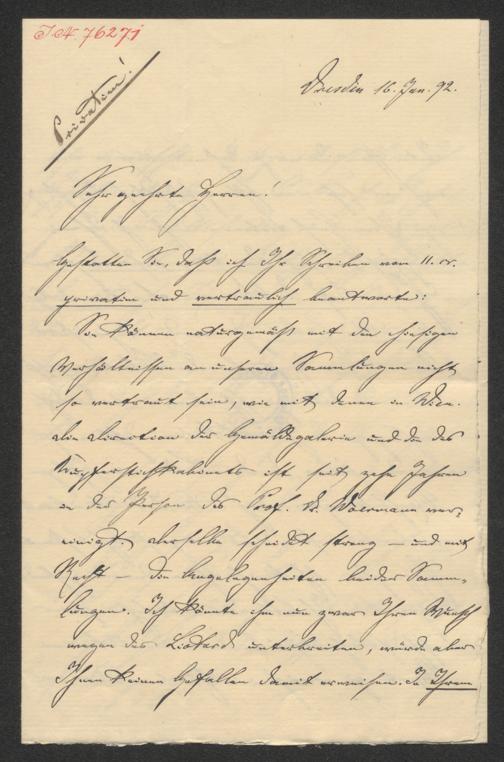 I.N. 76271
Privatim!
Dresden 16. Jan. 92.
Sehr geehrte Herren!
Gestatten Sie, daß ich Ihr Schreiben vom 11. cr.
privatim und vertraulich beantworte:
Sie können naturgemäß mit den hiesigen
Verhältnissen an unseren Sammlungen nicht
so vertraut sein, wie mit denen in Wien.
Die Direction der Gemäldegalerie und die des
Kupferstichkabinets ist seit zehn Jahren
in der Person des Prof. Dr. Woermann ver-
einigt. Derselbe scheidet streng – und mit
Recht – die Angelegenheiten beider Samm-
lungen. Ich könnte ihm nun zwar Ihren Wunsch
wegen des Liotard unterbreiten, würde aber
Ihnen keinen Gefallen damit erweisen. In Ihrem